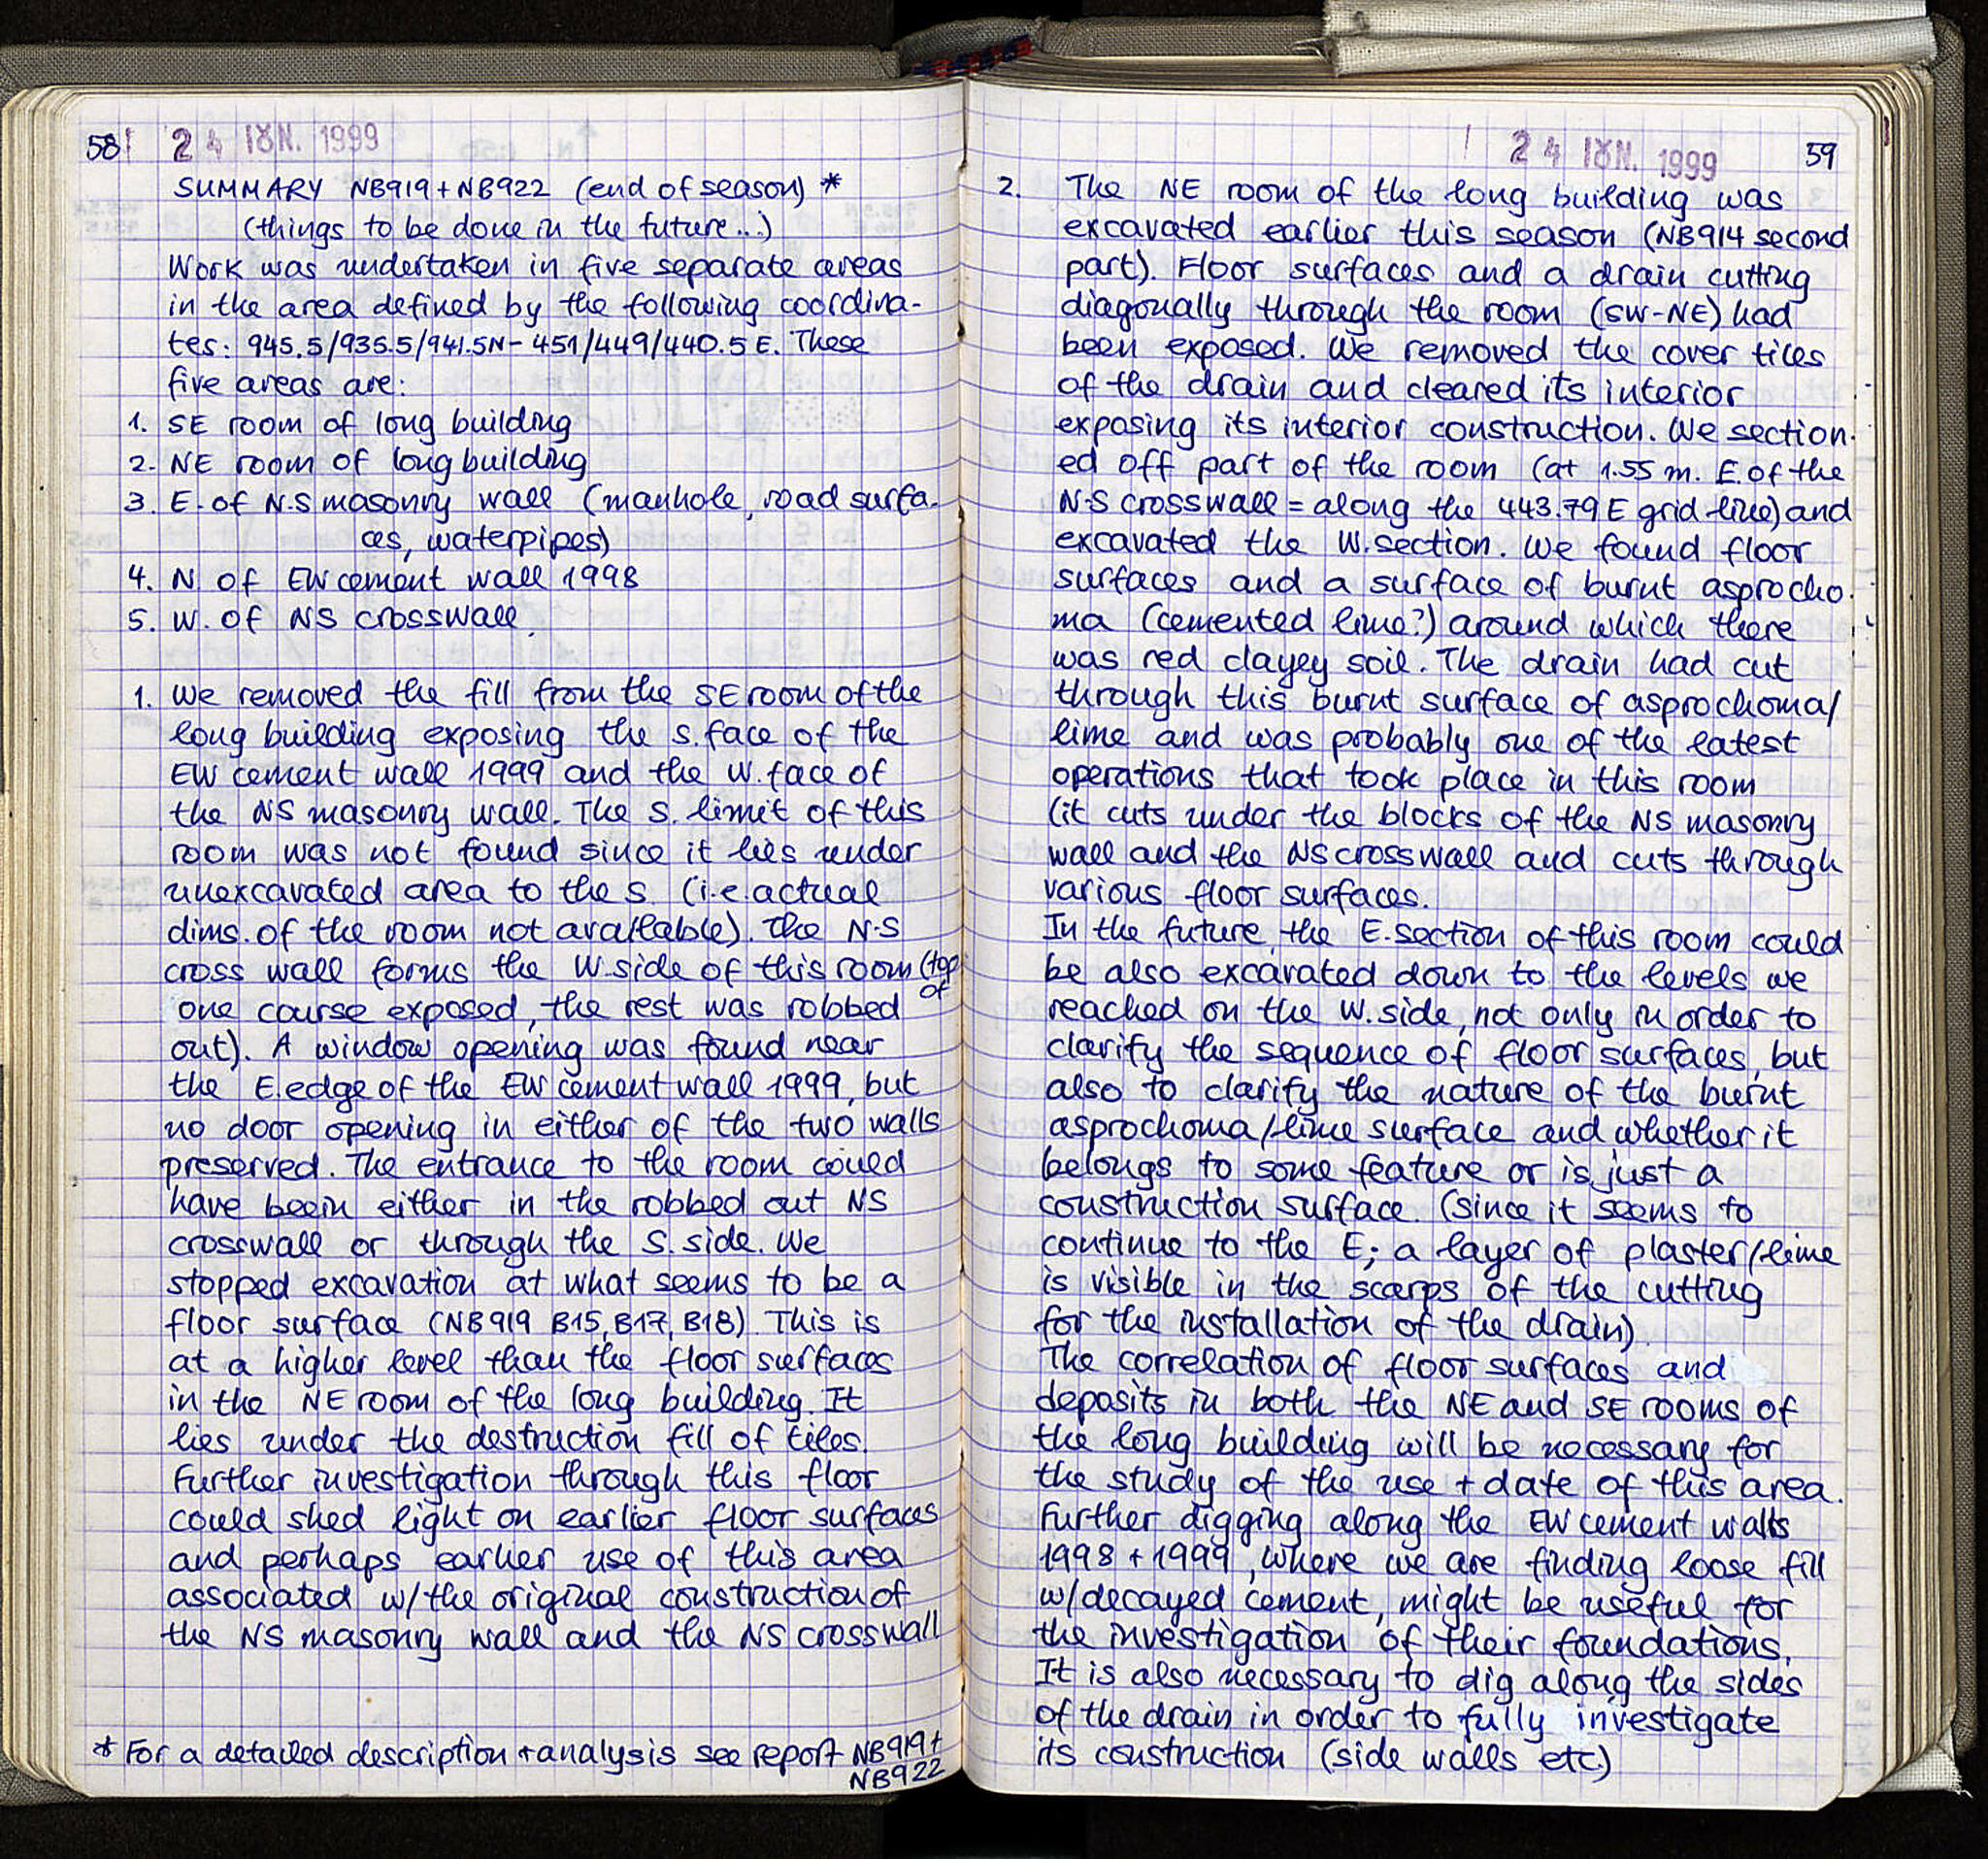 58 24 ΙΟΥΝ. 1999
SUMMARY NB919+NB922 (end of season) *
(things to be done in the future...)
Work was undertaken in five separate areas
in the area defined by the following coordina-
tes: 945.5/935.5/941.5N- 451/449/440.5 E. These
five areas are:
1. SE room of long building
2. NE room of long building
3. E. of N-S masonry wall (manhole, road surfa-
ces, waterpipes)
4. N. of EW cement wall 1998
5. W. of NS crosswall.
1. We removed the fill from the SE room of the
long building exposing the s. face of the
EW cement wall 1999 and the W. face of
the NS masonry wall. The S. limit of this
room was not found since it lies under
unexcavated area to the S. (i.e. actual
dims. of the room not available). The N-S
cross wall forms the W. side of this room (top
of
one course exposed, the rest was robbed
out). A window opening was found near
the E. edge of the EW cement wall 1999, but
no door opening in either of the two walls
preserved. The entrance to the room could
have been either in the robbed out NS
crosswall or through the S. side. We
stopped excavation at what seems to be a
floor surface (NB919 B15, B17, B18). This is
at a higher level than the floor surfaces
in the NE room of the long building. It
lies under the destruction fill of tiles.
Further investigation through this floor
could shed light on earlier floor surfaces
and perhaps earlier use of this area
associated w/the original construction of
the NS masonry wall and the NS crosswall
* For a detailed description + analysis see report NB919+
NB922
24 ΙΟΥΝ. 1999 59
2. The NE room of the long building was
excavated earlier this season (NB914 second
part). Floor surfaces and a drain cutting
diagonally through the room (SW-NE) had
been exposed. We removed the cover tiles
of the drain and cleared its interior
exposing its interior construction. We section-
ed off part of the room (at 1.55 m. E. of the
N-S crosswall = along the 443.79 E grid line) and
excavated the W. section. We found floor
surfaces and a surface of burnt asprocho-
ma (cemented lime?) around which there
was red clayey soil. The drain had cut
through this burnt surface of asprochoma/
lime and was probably one of the latest
operations that took place in this room
(it cuts under the blocks of the NS masonry
wall and the NS crosswall and cuts through
various floor surfaces.
In the future, the E. section of this room could
be also excavated down to the levels we
reached on the W. side, not only in order to
clarify the sequence of floor surfaces, but
also to clarify the nature of the burnt
asprochoma/lime surface and whether it
belongs to some feature or is just a
construction surface. (Since it seems to
continue to the E; a layer of plaster/lime
is visible in the scarps of the cutting
for the installation of the drain).
The correlation of floor surfaces and
deposits in both the NE and SE rooms of
the long building will be necessary for
the study of the use + date of this area.
Further digging along the EW cement walls
1998 + 1999, where we are finding loose fill
w/decayed cement, might be useful for
the investigation of their foundations.
It is also necessary to dig along the sides
of the drain in order to fully investigate
its construction (side walls etc)